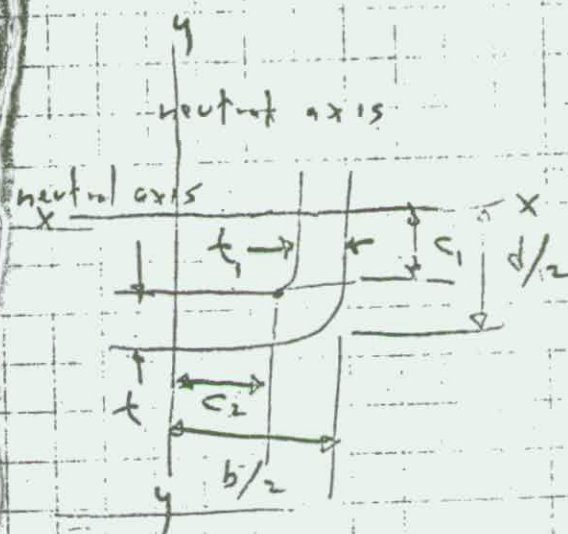 y
neutral axis
neutral axis
x
x
t₁
c₁
d/2
t
c₂
b/2
y